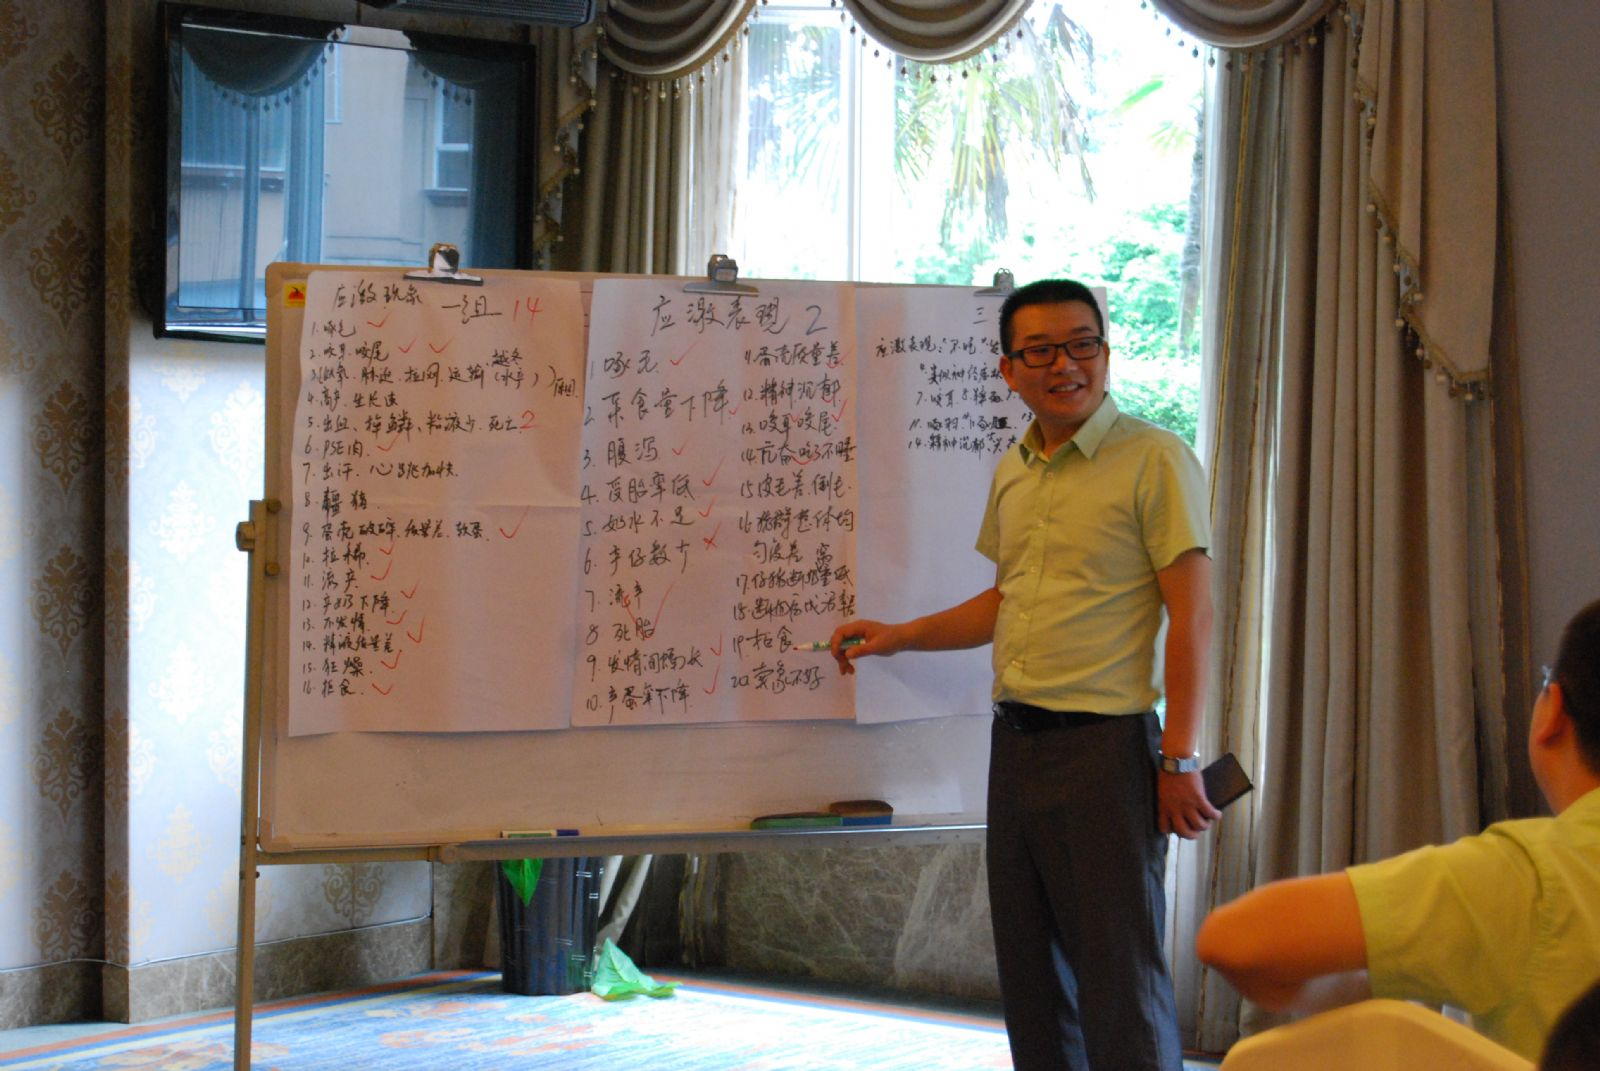 应激现象 一组 14
1. 啄毛
2. 咬耳、咬尾
拉网、运输(水产)
越冬
4. 高产、生长速
5. 出血、掉鳞、粘液少、死亡 2
6. PSE肉
7. 出汗、心跳加快
8. 猪
9. 蛋壳破碎、质量差、软蛋
10. 拉稀
11. 流产
12. 产奶下降
13. 不发情
14. 精液质量差
15. 狂燥
16. 拒食
应激表现 2
1. 啄毛
2. 采食量下降
3. 腹泻
4. 受胎率低
5. 奶水不足
6. 产仔数少
7. 流产
8. 死胎
9. 发情间隔长
10. 产蛋率下降
11. 蛋壳质量差
12. 精神沉郁
13. 咬耳咬尾
14. 亢奋 吃了不睡
15. 皮毛差、倒毛
16. 猪群整体均
匀度差
17. 仔猪断奶窝重低
18. 断奶后成活率
19. 拒食
20. 不好
三
应激表现:
类似神经症状
7. 咬耳 8.
11. 13
14. 精神沉郁